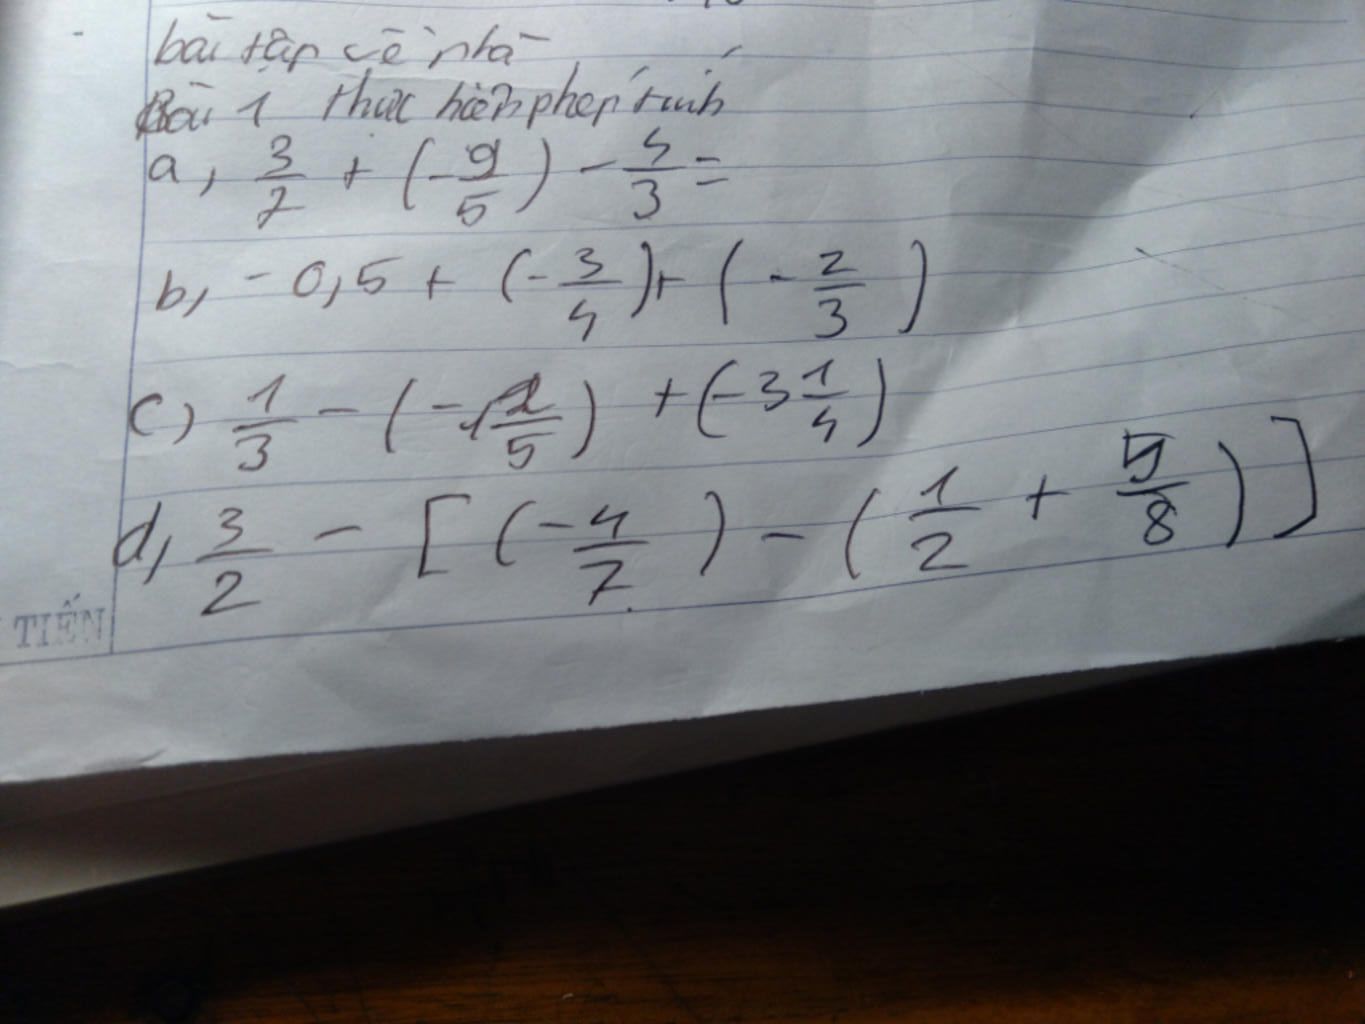 bài tập về nhà
Bài 1 thực hiện phép tính
a, 3/7 + (-9/5) - 4/3 =
b, -0,5 + (-3/4) + (-2/3)
c) 1/3 - (-1 2/5) + (-3 1/4)
d, 3/2 - [(-4/7) - (1/2 + 5/8)]
TIẾN